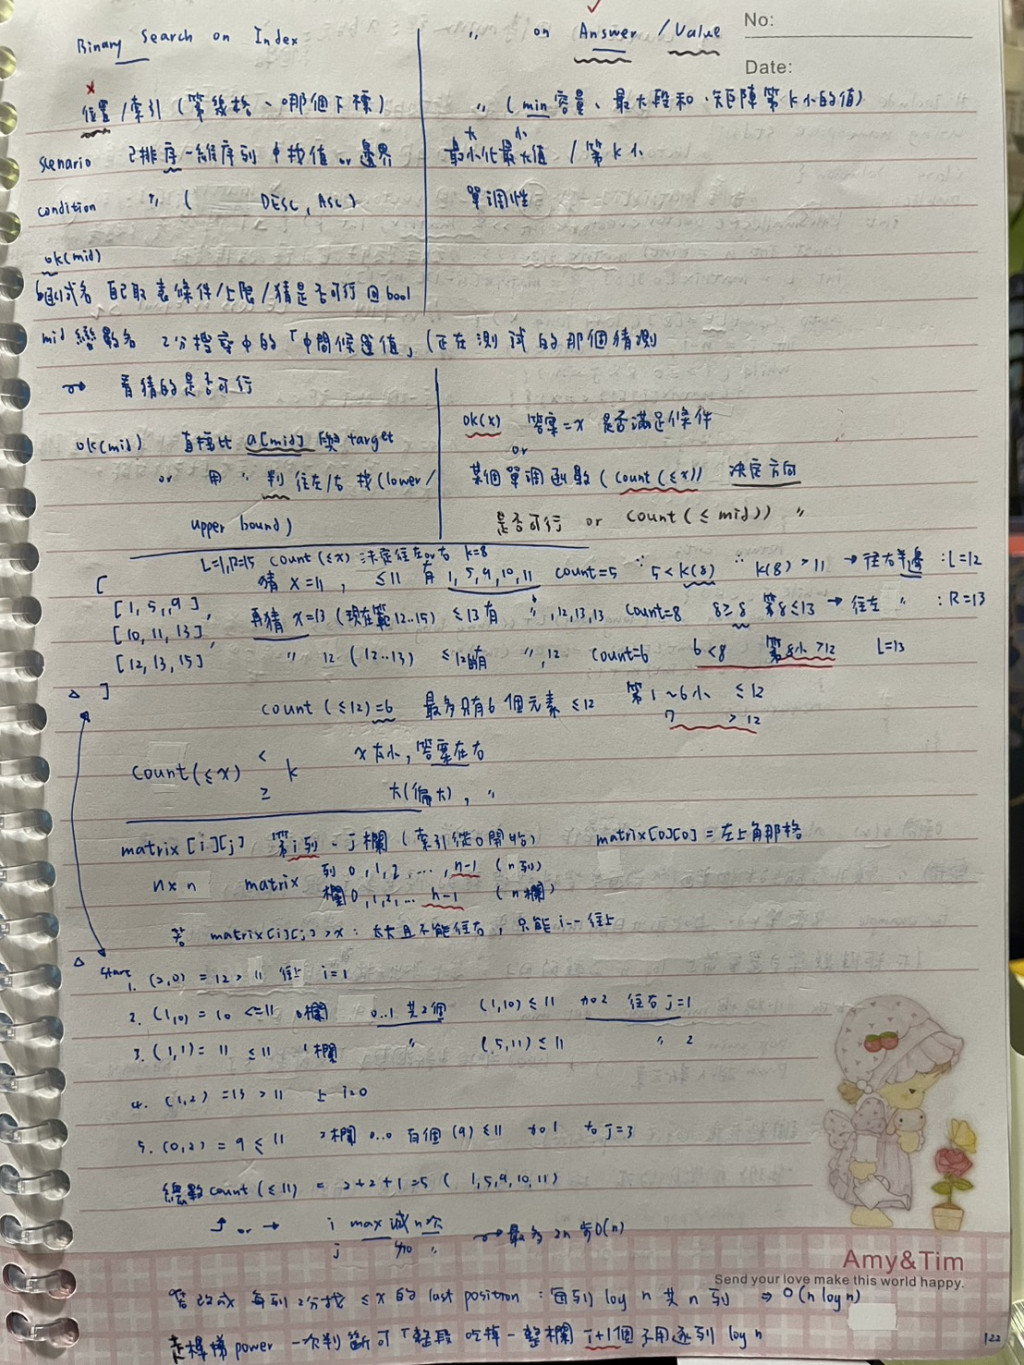 Binary Search on Index
〃 on Answer / Value
No:
Date:
位置/索引 (第幾格、哪個下標)
〃 (min 容量、最大段和、矩陣第 k 小的值)
scenario 已排序一維序列 中找值 or 邊界
最小化最大值 / 第 k 小
大 小
condition 〃 ( DESC, ASC)
單調性
ok(mid)
函式名 自己取 表條件/上限/猜是否可行 回 bool
mid 變數名 2分搜尋中的「中間候選值」(正在測試的那個猜測
→ 看猜的是否可行
ok(mid) 直接比 a[mid] 與 target
or 用 〃 判往左/右找 (lower/
upper bound)
ok(x) 答案=x 是否滿足條件
or
某個單調函數 (count(≤x)) 決定方向
是否可行 or count(≤mid)) 〃
L=1,R=15 count(≤x) 決定往左or右 k=8
[
[1, 5, 9],
[10, 11, 13],
[12, 13, 15]
]
猜 x=11, ≤11 有 1, 5, 9, 10, 11 count=5 ∵ 5<k(8) k(8)>11 → 往右半邊 : L=12
再猜 x=13 (現在範12..15) ≤13有 〃, 12, 13, 13 count=8 8≥8 第8≤13 → 往左 〃 : R=13
〃 12 (12..13) ≤12的有 〃, 12 count=6 6<8 第8小>12 L=13
count(≤12)=6 最多只有6個元素≤12 第1~6小 ≤12
7 >12
count(≤x) < k x太小, 答案在右
≥ 大(偏大), 〃
matrix[i][j] 第i列、j欄 (索引從0開始) matrix[0][0] = 左上角那格
n×n matrix 列 0, 1, 2, ..., n-1 (n列)
欄 0, 1, 2, ... n-1 (n欄)
若 matrix[i][j] > x : 太大且不能往右, 只能 i-- 往上
start
1. (2,0) = 12 > 11 往上 i=1
2. (1,0) = 10 <= 11 0欄 0..1 共2個 (1,10) ≤ 11 加2 往右 j=1
3. (1,1) = 11 ≤ 11 1欄 〃 (5,11) ≤ 11 〃 2
4. (1,2) = 13 > 11 上 i=0
5. (0,2) = 9 ≤ 11 2欄 0..0 有個 (9) ≤ 11 加1 加 j=3
總數 count(≤11) = 2+2+1=5 (1,5,9,10,11)
↑ or → i max 減n次
j 加n 〃 → 最多 2n 步 O(n)
若改成 每列2分找 ≤x 的 last position : 每列 log n 共 n 列 ⇒ O(n log n)
走樓梯 power 一次判斷可「整段 吃掉一整欄 i+1個 不用逐列 log n
Amy&Tim
Send your love make this world happy.